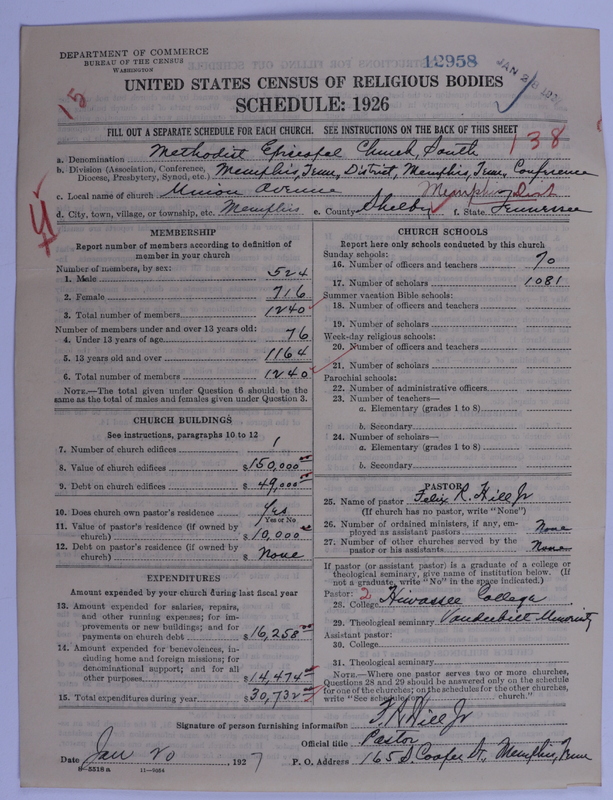 DEPARTMENT OF COMMERCE
BUREAU OF THE CENSUS
WASHINGTON
12958
UNITED STATES CENSUS OF RELIGIOUS BODIES
SCHEDULE: 1926
15
FILL OUT A SEPARATE SCHEDULE FOR EACH CHURCH. SEE INSTRUCTIONS ON THE BACK OF THIS SHEET
138
a. Denomination Methodist Episcopal Church, South
b. Division (Association, Conference, Diocese, Presbytery, Synod, etc.) Memphis, Tenn, District, Memphis, Tenn, Conference
c. Local name of church Union Avenue Memphis Dist
d. City, town, village, or township, etc. Memphis e. County Shelby f. State Tennessee
MEMBERSHIP
Report number of members according to definition of
member in your church
Number of members, by sex:
1. Male 524
2. Female 716
3. Total number of members 1240
Number of members under and over 13 years old:
4. Under 13 years of age 76
5. 13 years old and over 1164
6. Total number of members 1240
NOTE.—The total given under Question 6 should be the
same as the total of males and females given under Question 3.
CHURCH BUILDINGS
See instructions, paragraphs 10 to 12
7. Number of church edifices 1
8. Value of church edifices $150,000.00
9. Debt on church edifices $49,000.00
10. Does church own pastor's residence Yes
Yes or No
11. Value of pastor's residence (if owned by
church) $10,000.00
12. Debt on pastor's residence (if owned by
church) $ None
EXPENDITURES
Amount expended by your church during last fiscal year
13. Amount expended for salaries, repairs,
and other running expenses; for im-
provements or new buildings; and for
payments on church debt $16,258.00
14. Amount expended for benevolences, in-
cluding home and foreign missions; for
denominational support; and for all
other purposes $14,474.00
15. Total expenditures during year $30,732.00
CHURCH SCHOOLS
Report here only schools conducted by this church
Sunday schools:
16. Number of officers and teachers 70
17. Number of scholars 1081
Summer vacation Bible schools:
18. Number of officers and teachers
19. Number of scholars
Week-day religious schools:
20. Number of officers and teachers
21. Number of scholars
Parochial schools:
22. Number of administrative officers
23. Number of teachers—
a. Elementary (grades 1 to 8)
b. Secondary
24. Number of scholars—
a. Elementary (grades 1 to 8)
b. Secondary
PASTOR
25. Name of pastor Felix R. Hill Jr
(If church has no pastor, write "None")
26. Number of ordained ministers, if any, em-
ployed as assistant pastors None
27. Number of other churches served by the
pastor or his assistants None
If pastor (or assistant pastor) is a graduate of a college or
theological seminary, give name of institution below. (If
not a graduate, write "No" in the space indicated.)
Pastor: 2
28. College Hiwassee College
29. Theological seminary Vanderbilt
Assistant pastor:
30. College
31. Theological seminary
NOTE.—Where one pastor serves two or more churches,
Questions 28 and 29 should be answered only on the schedule
for one of the churches; on the schedules for the other churches,
write "See schedule for church."
Signature of person furnishing information F. R. Hill Jr
Official title Pastor
Date Jan 20, 1927 P. O. Address 165 S. Cooper St., Memphis, Tenn
8-5518 a 11-9354